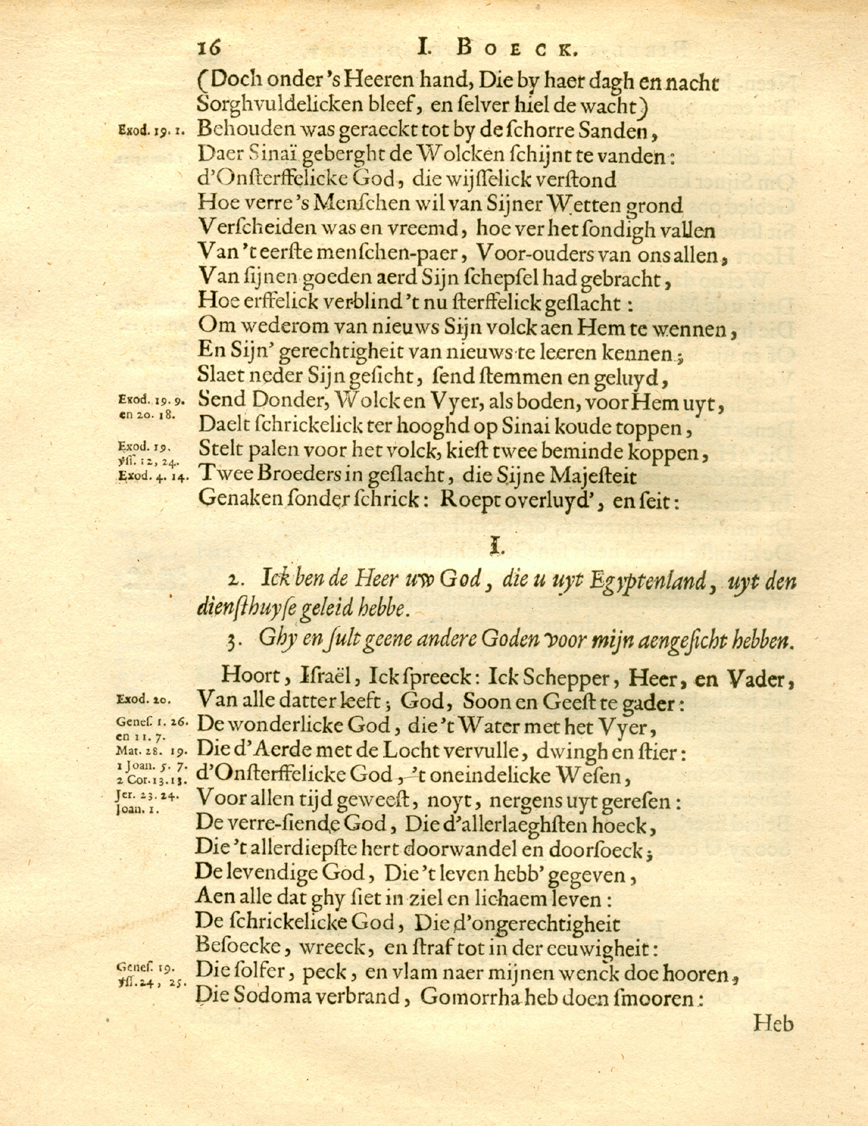 16 I. BOECK.
(Doch onder 's Heeren hand, Die by haer dagh en nacht
Sorghvuldelicken bleef, en ſelver hiel de wacht)
Exod. 19. 1. Behouden was geraeckt tot by de ſchorre Sanden,
Daer Sinaï geberght de Wolcken ſchijnt te vanden:
d'Onſterffelicke God, die wijſſelick verſtond
Hoe verre 's Menſchen wil van Sijner Wetten grond
Verſcheiden was en vreemd, hoe ver het ſondigh vallen
Van 't eerſte menſchen-paer, Voor-ouders van ons allen,
Van ſijnen goeden aerd Sijn ſchepſel had gebracht,
Hoe erffelick verblind 't nu ſterffelick geſlacht:
Om wederom van nieuws Sijn volck aen Hem te wennen,
En Sijn' gerechtigheit van nieuws te leeren kennen;
Slaet neder Sijn geſicht, ſend ſtemmen en geluyd,
Exod. 19. 9. Send Donder, Wolck en Vyer, als boden, voor Hem uyt,
en 20. 18.
Daelt ſchrickelick ter hooghd op Sinai koude toppen,
Exod. 19. Stelt palen voor het volck, kieſt twee beminde koppen,
yſſ. 12, 24.
Exod. 4. 14. Twee Broeders in geſlacht, die Sijne Majeſteit
Genaken ſonder ſchrick: Roept overluyd', en ſeit:
I.
2. Ick ben de Heer uw God, die u uyt Egyptenland, uyt den
dienſthuyſe geleid hebbe.
3. Ghy en ſult geene andere Goden voor mijn aengeſicht hebben.
Hoort, Iſraël, Ick ſpreeck: Ick Schepper, Heer, en Vader,
Exod. 20. Van alle datter leeft; God, Soon en Geeſt te gader:
Geneſ. 1. 26. De wonderlicke God, die 't Water met het Vyer,
en 11. 7.
Mat. 28. 19. Die d'Aerde met de Locht vervulle, dwingh en ſtier:
1 Joan. 5. 7.
2 Cor. 13. 13. d'Onſterffelicke God, 't oneindelicke Weſen,
Jer. 23. 24. Voor allen tijd geweeſt, noyt, nergens uyt gereſen:
Joan. 1.
De verre-ſiende God, Die d'allerlaeghſten hoeck,
Die 't allerdiepſte hert doorwandel en doorſoeck;
De levendige God, Die 't leven hebb' gegeven,
Aen alle dat ghy ſiet in ziel en lichaem leven:
De ſchrickelicke God, Die d'ongerechtigheit
Beſoecke, wreeck, en ſtraf tot in der eeuwigheit:
Geneſ. 19. Die ſolfer, peck, en vlam naer mijnen wenck doe hooren,
yſſ. 24, 25.
Die Sodoma verbrand, Gomorrha heb doen ſmooren:
Heb